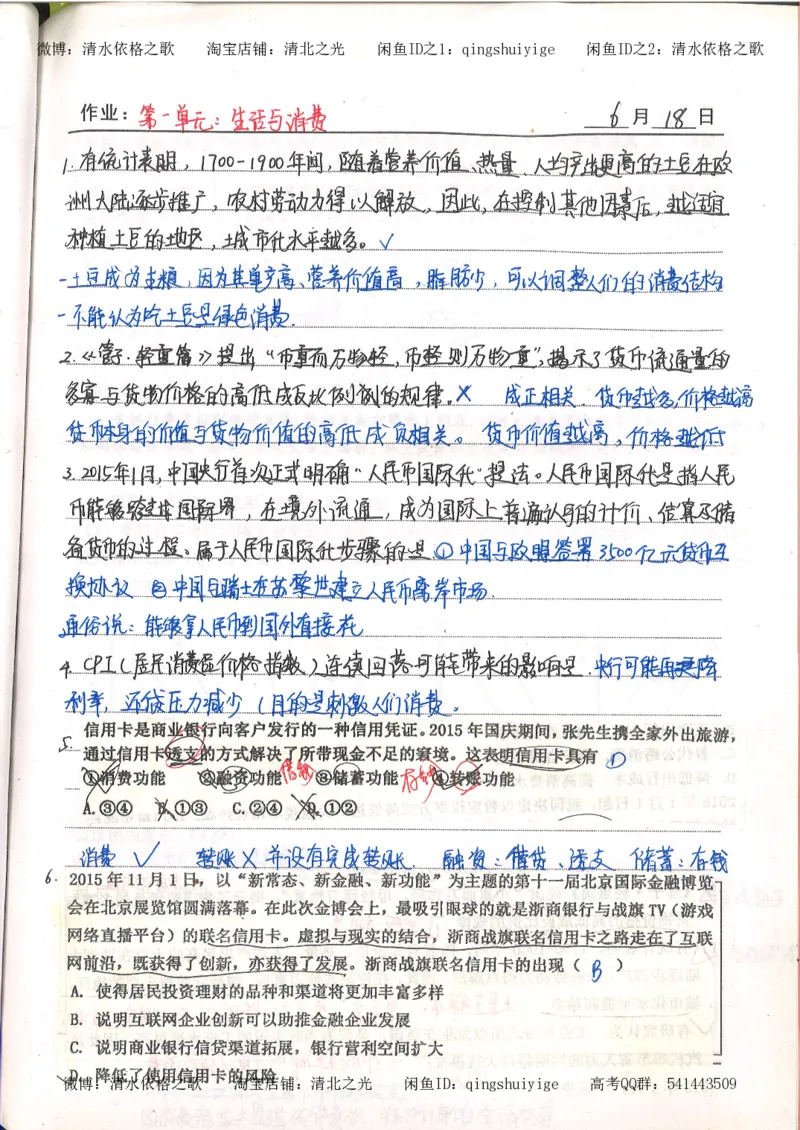 微博：清水依格之歌 淘宝店铺：清北之光 闲鱼ID之1：qingshuiyige 闲鱼ID之2：清水依格之歌
作业：第一单元：生活与消费 6月18日
1.有统计表明，1700-1900年间，随着营养价值、热量、人均产出更高的土豆在欧
洲大陆逐步推广，农村劳动力得以解放，因此，在控制其他因素后，越适宜
种植土豆的地区，城市化水平越高。√
-土豆成为主粮，因为其单产高、营养价值高，脂肪少，可以调整人们的消费结构
-不能认为吃土豆是绿色消费.
2.《管子·轻重篇》提出"币重而万物轻，币轻则万物重"，揭示了货币流通量的
多寡与货物价格的高低成反比例的规律。× 成正相关.货币越多，价格越高
货币本身的价值与货物价值的高低成负相关。货币价值越高，价格越低
3.2015年1月，中国央行首次正式明确"人民币国际化"提法。人民币国际化是指人民
币能够跨越国界，在境外流通，成为国际上普遍认可的计价、结算及储
备货币的过程。属于人民币国际化步骤的是 ①中国与欧盟签署3500亿元货币互
换协议 ②中国与瑞士在苏黎世建立人民币离岸市场.
通俗说：能够拿人民币到国外直接花
4.CPI（居民消费品价格指数）连续回落可能带来的影响是，央行可能再度降
利率，还贷压力减少（目的是刺激人们消费。
5.信用卡是商业银行向客户发行的一种信用凭证。2015年国庆期间，张先生携全家外出旅游，
通过信用卡透支的方式解决了所带现金不足的窘境。这表明信用卡具有 D
①消费功能 ②融资功能 借钱 ③储蓄功能 存钱 ④转账功能
A.③④ B.①③ C.②④ D.①②
消费 √ 转账×并没有完成转账. 融资：借贷、透支 储蓄：存钱
6.2015年11月1日，以“新常态、新金融、新功能”为主题的第十一届北京国际金融博览
会在北京展览馆圆满落幕。在此次金博会上，最吸引眼球的就是浙商银行与战旗TV（游戏
网络直播平台）的联名信用卡。虚拟与现实的结合，浙商战旗联名信用卡之路走在了互联
网前沿，既获得了创新，亦获得了发展。浙商战旗联名信用卡的出现（ B ）
A. 使得居民投资理财的品种和渠道将更加丰富多样
B. 说明互联网企业创新可以助推金融企业发展
C. 说明商业银行信贷渠道拓展，银行营利空间扩大
D. 降低了使用信用卡的风险
微博：清水依格之歌 淘宝店铺：清北之光 闲鱼ID：qingshuiyige 高考QQ群：541443509